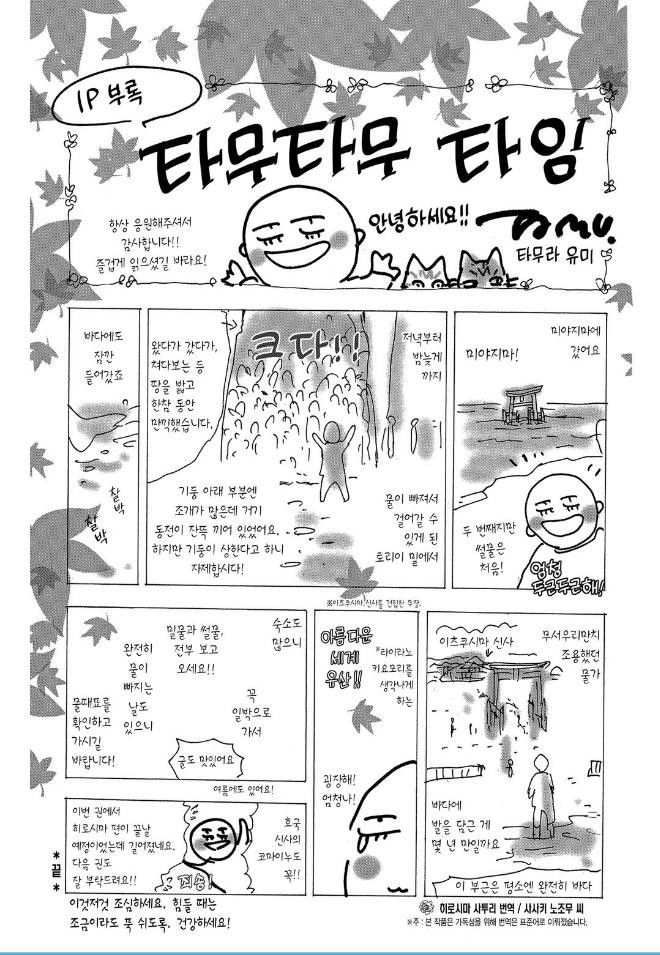 1P 부록
타무타무 타임
항상 응원해주셔서
감사합니다!!
즐겁게 읽으셨길 바라요!
안녕하세요!!
TAMU.
타무라 유미
미야지마에
갔어요
미야지마!
두 번째지만
썰물은
처음!
엄청
두근두근해!
저녁부터
밤늦게
까지
크다!!
물이 빠져서
걸어갈 수
있게 된
토리이 밑에서
왔다가 갔다가,
쳐다보는 등
땅을 밟고
한참 동안
만끽했습니다.
기둥 아래 부분엔
조개가 많은데 거기
동전이 잔뜩 끼어 있었어요.
하지만 기둥이 상한다고 하니
자제합시다!
바다에도
잠깐
들어갔죠
찰박
찰박
※이츠쿠시마 신사를 건립한 무장.
이츠쿠시마 신사
무서우리만치
조용했던
물가
바다에
발을 담근 게
몇 년 만일까요
이 부근은 평소에 완전히 바다
아름다운
세계
유산!!
*타이라노
키요모리를
생각나게
하는
굉장해!
엄청나!
숙소도
많으니
꼭
일박으로
가서
밀물과 썰물,
전부 보고
오세요!!
완전히
물이
빠지는
날도
있으니
물때표를
확인하고
가시길
바랍니다!
굴도 맛있어요
여름에도 있어요!
호국
신사의
코마이누도
꼭!!
이번 권에서
히로시마 편이 끝날
예정이었는데 길어졌네요.
다음 권도
잘 부탁드려요!!
죄송!
*끝*
이것저것 조심하세요. 힘들 때는
조금이라도 푹 쉬도록. 건강하세요!
히로시마 사투리 번역 / 사사키 노조무 씨
※주 : 본 작품은 가독성을 위해 번역은 표준어로 이뤄졌습니다.